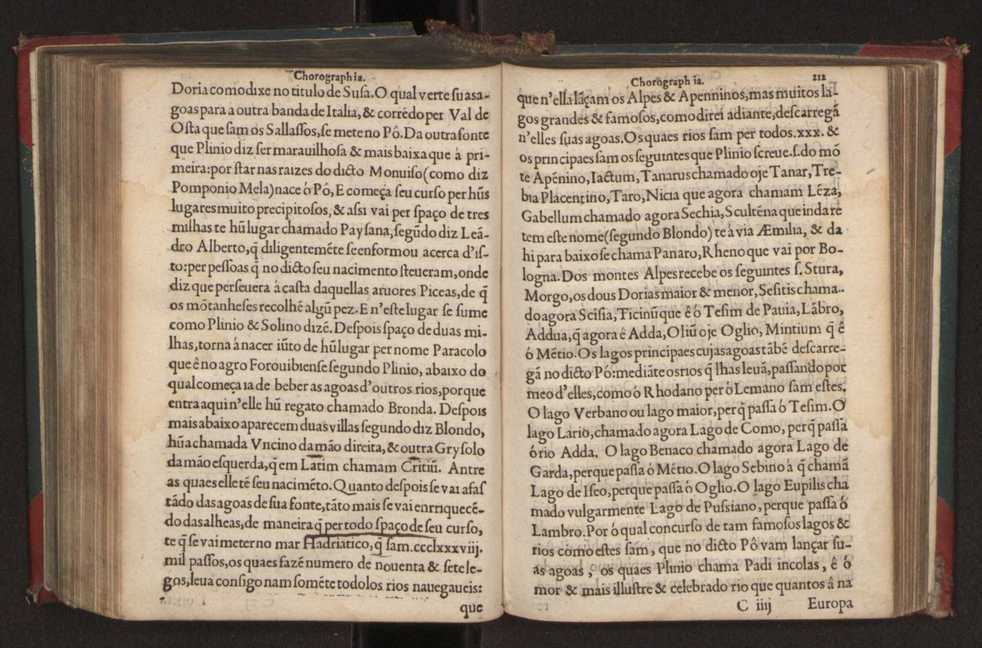 Chorographia.
Doria como dixe no titulo de Susa. O qual verte su as a-
goas para a outra banda de Italia, & corrédo per Val de
Osta que sam os Sallassos, se mete no Pô. Da outra fonte
que Plinio diz ser marauilhosa & mais baixa que à pri-
meira: por star nas raizes do dicto Monuiso (como diz
Pomponio Mela) nace ò Pô, E começa seu curso per hũs
lugares muito precipitosos, & assi vai per spaço de tres
milhas te hũ lugar chamado Paysana, segũdo diz Leã-
dro Alberto, q̃ diligenteméte se enformou acerca d'is-
to: per pessoas q̃ no dicto seu nacimento steueram, onde
diz que perseuera à casta daquellas aruores Piceas, de q̃
os mõtanheses recolhé algũ pez. E n'este lugar se sume
como Plinio & Solino dizē. Despois spaço de duas mi-
lhas, torna à nacer iũto de hũ lugar per nome Paracolo
que ê no agro Forouibiense segundo Plinio, abaixo do
qual começa ia de beber as agoas d'outros rios, porque
entra aqui n'elle hũ regato chamado Bronda. Despois
mais abaixo aparecem duas villas segundo diz Blondo,
hũa chamada Vncino da mão direita, & outra Grysolo
da mão esquerda, q̃ em Latim chamam Critiũ. Antre
as quaes elle tē seu naciméto. Quanto despois se vai afas
tãdo das agoas de sua fonte, tãto mais se vai enrriquecē-
do das alheas, de maneira q̃ per todo spaço de seu curso,
te q̃ se vai meter no mar Hadriatico, q̃ sam. ccclxxxviij.
mil passos, os quaes fazē numero de nouenta & sete le-
gos, leua consigo nam sométe todolos rios nauegaueis:
que
Chorographia. 212
que n'ella lãçam os Alpes & Apenninos, mas muitos la-
gos grandes & famosos, como direi adiante, descarregã
n'elles suas agoas. Os quaes rios sam per todos. xxx. &
os principaes sam os seguintes que Plinio screue. s. do mõ
te Apénino, Iactum, Tanarus chamado oje Tanar, Tre-
bia Placentino, Taro, Nicia que agora chamam Léza,
Gabellum chamado agora Sechia, Scultēna que inda re
tem este nome (segundo Blondo) te à via Æmilia, & da
hi para baixo se chama Panaro, Rheno que vai por Bo-
logna. Dos montes Alpes recebe os seguintes s. Stura,
Morgo, os dous Dorias maior & menor, Sesitis chama-
do agora Scisia, Ticinũ que ê ò Tesim de Pauia, Lãbro,
Addua, q̃ agora ê Adda, Oliũ oje Oglio, Mintium q̃ ê
ò Métio. Os lagos principaes cujas agoas tãbé descarre-
gã no dicto Pô: mediãte os rios q̃ lhas leuã, passando por
meo d'elles, como ò Rhodano per ò Lemano sam estes.
O lago Verbano ou lago maior, per q̃ passa ò Tesim. O
lago Lario, chamado agora Lago de Como, per q̃ passa
ò rio Adda. O lago Benaco chamado agora Lago de
Garda, perque passa ò Métio. O lago Sebino à q̃ chamã
Lago de Iseo, perque passa ò Oglio. O lago Eupilis cha
mado vulgarmente Lago de Pussiano, perque passa ò
Lambro. Por ò qual concurso de tam famosos lagos &
rios como estes sam, que no dicto Pô vam lançar su-
as agoas, os quaes Plinio chama Padi incolas, ê ò
mor & mais illustre & celebrado rio que quantos â na
C iiij Europa